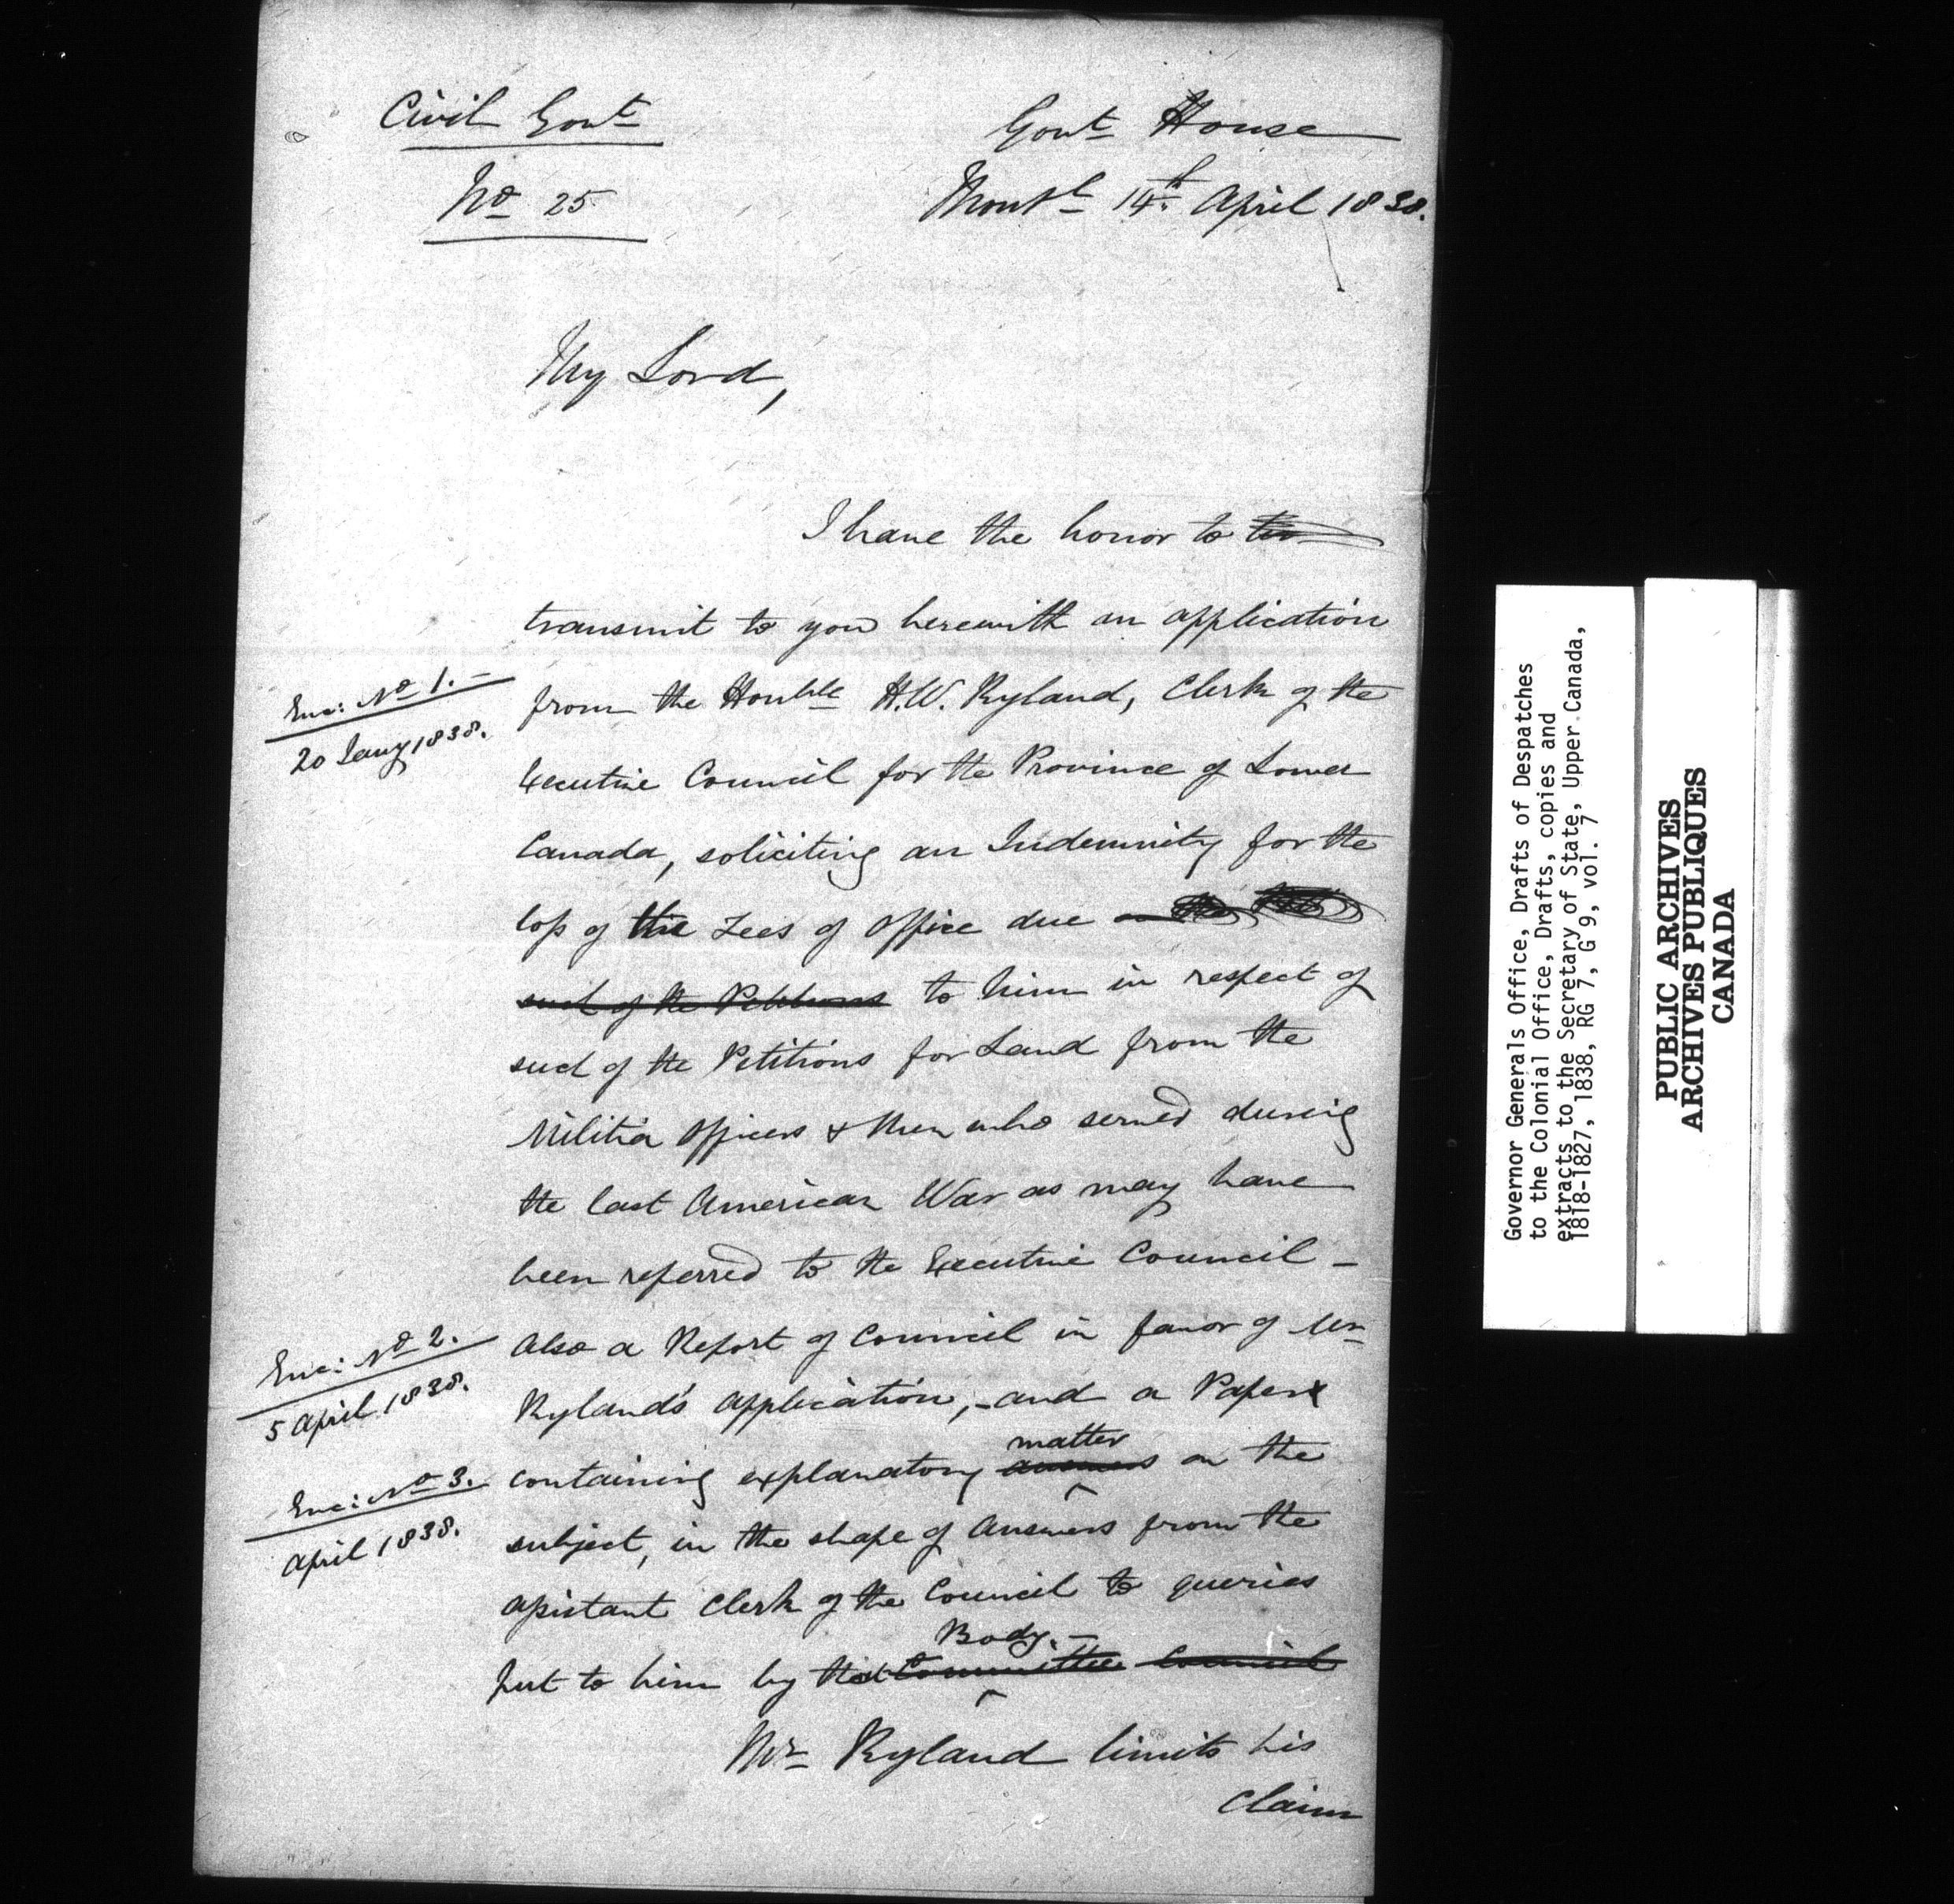 Civil Govt
No 25
Govt House
Montl 14th April 1838.
My Lord,
I have the honor to
transmit to you herewith an application
Enc: No 1. -
20 Jany 1838.
from the Honble H.W. Ryland, Clerk of the
Executive Council for the Province of Lower
Canada, soliciting an Indemnity for the
loss of the Fees of Office due
such of the Petitions to him in respect of
such of the Petitions for Land from the
Militia Officers & Men who served during
the last American War as may have
been referred to the Executive Council -
Enc: No 2.
5 April 1838.
Also a Report of Council in favor of Mr
Ryland's application, - and a Paper
Enc: No 3.
April 1838.
matter
containing explanatory answers on the
subject, in the shape of Answers from the
assistant Clerk of the Council to queries
Body. -
put to him by that Committee Council
Mr Ryland limits his
claim
Governor Generals Office, Drafts of Despatches
to the Colonial Office, Drafts, copies and
extracts to the Secretary of State, Upper Canada,
1818-1827, 1838, RG 7, G 9, vol. 7
PUBLIC ARCHIVES
ARCHIVES PUBLIQUES
CANADA